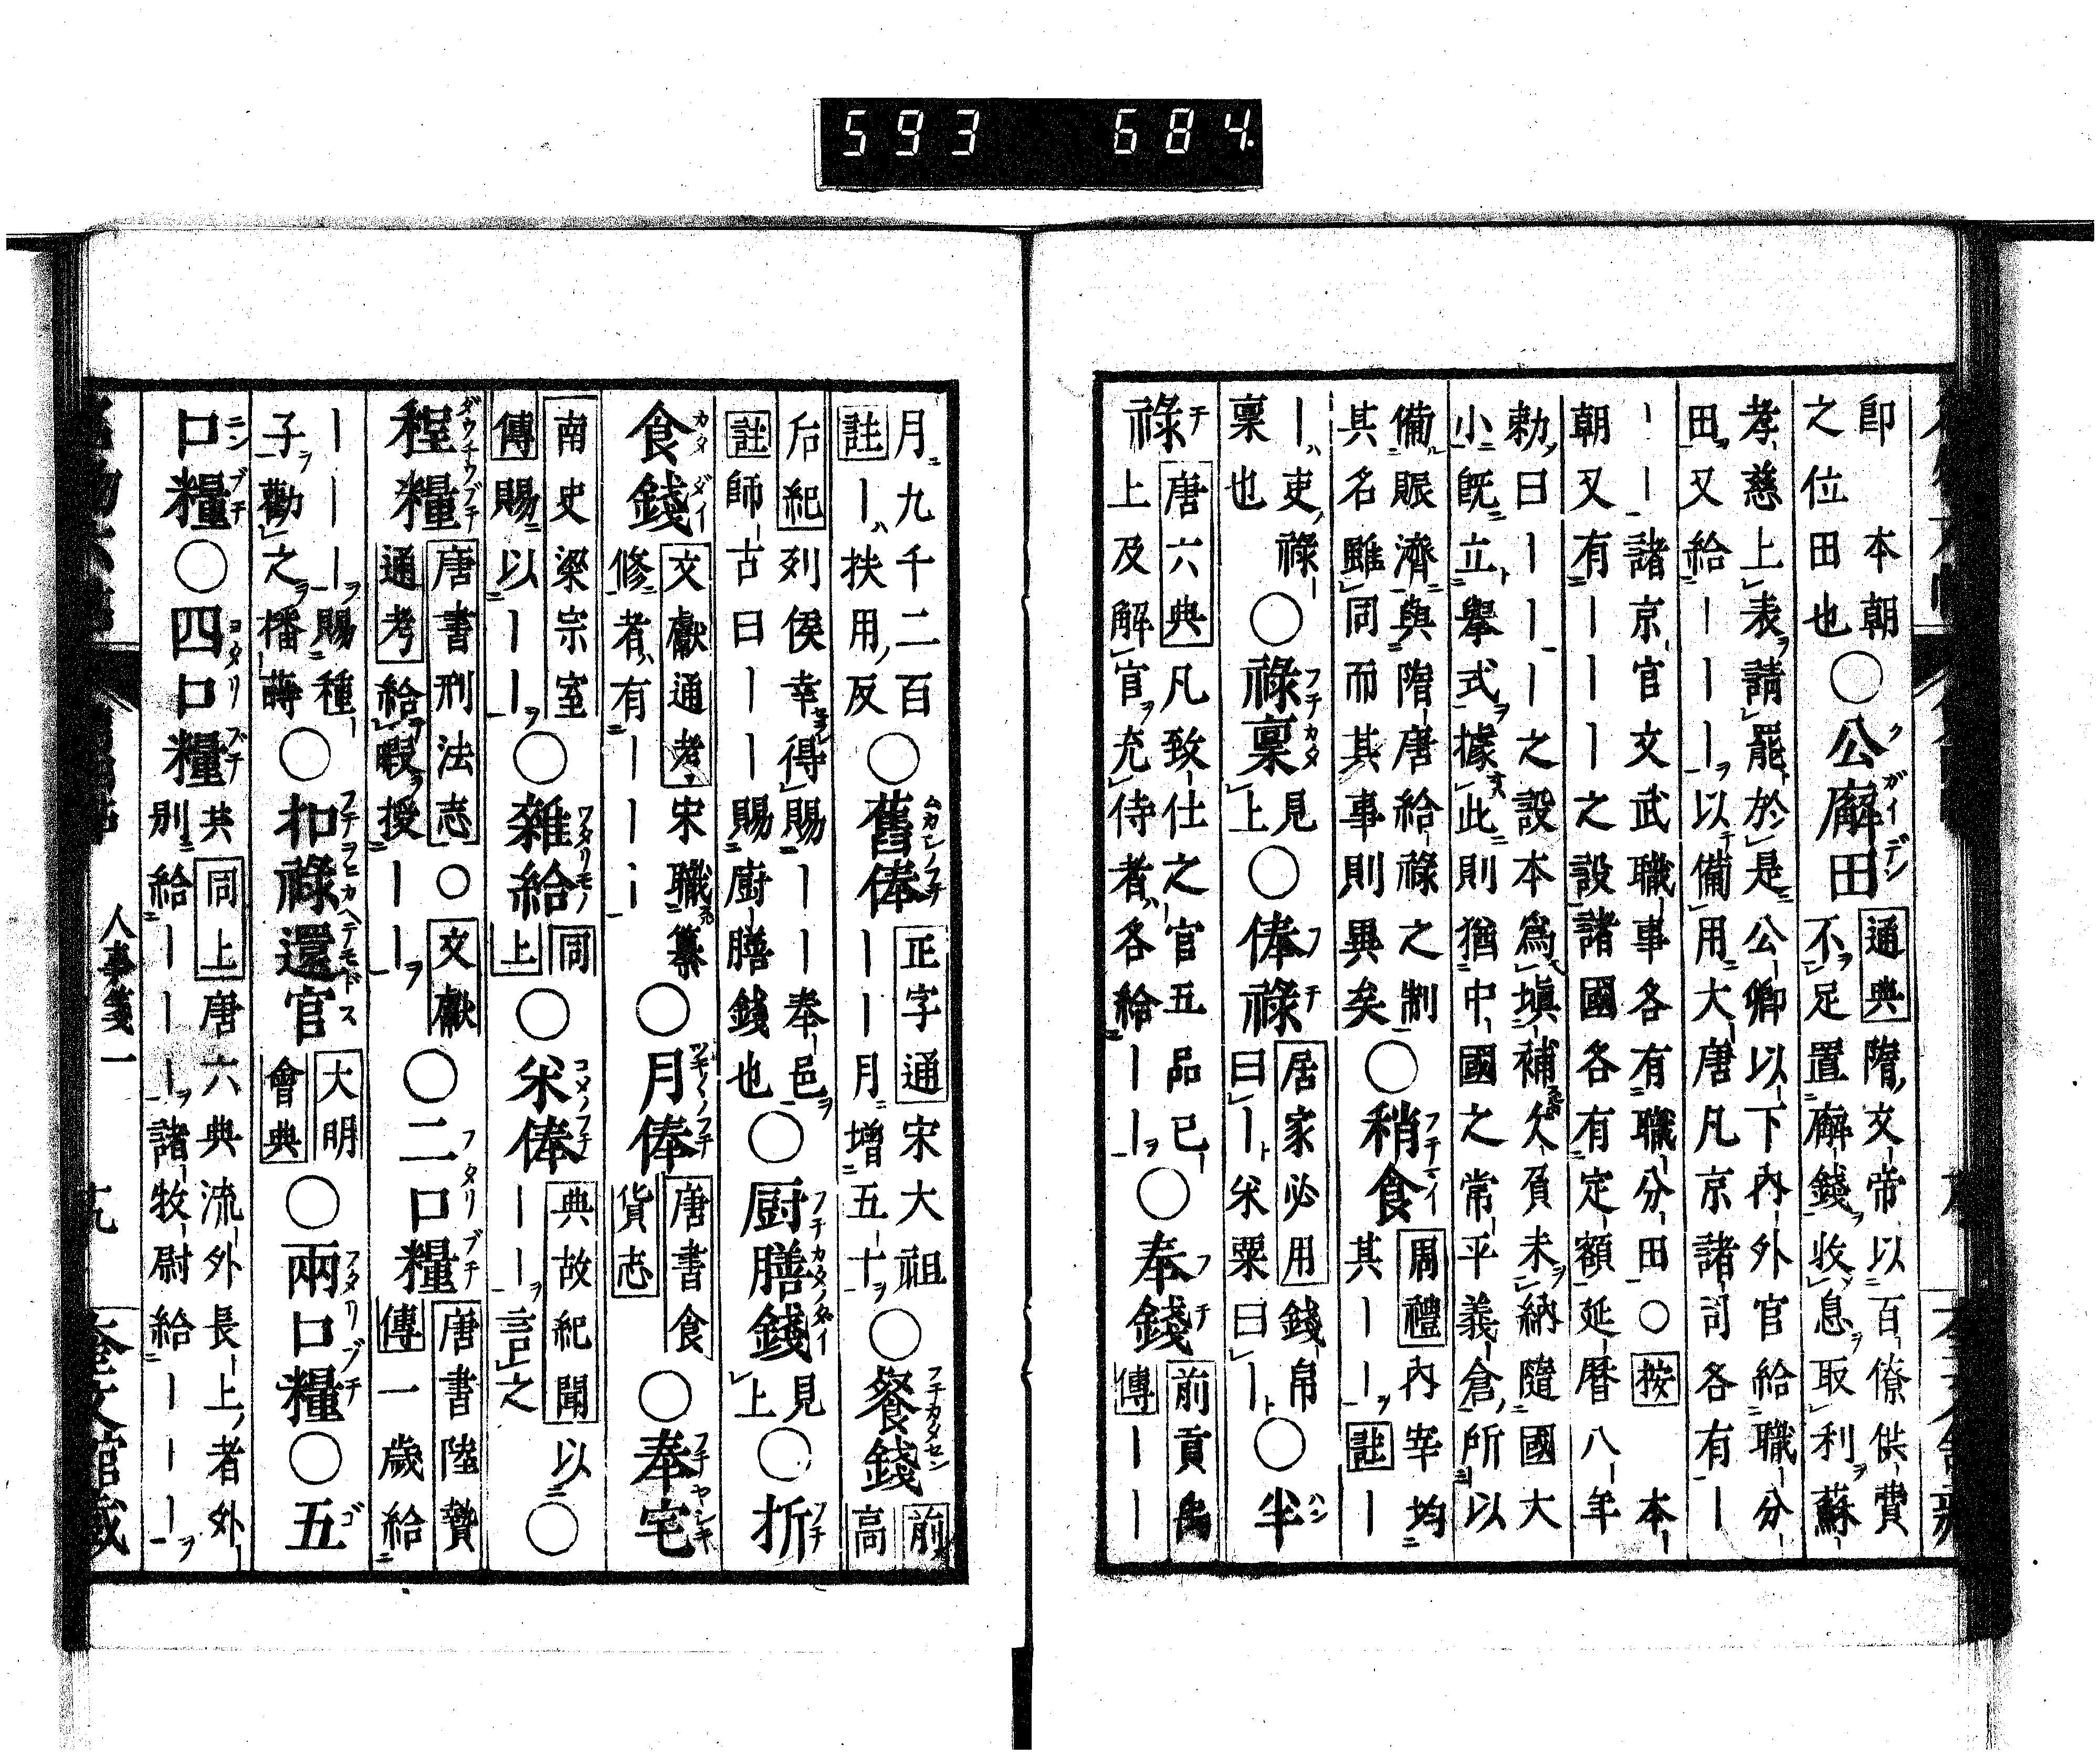 593 684.
即本朝
之位田也
○公廨田
通典隋文帝以百僚供費
不足置廨錢收息取利蘇
孝慈上表請罷於是公卿以下内外官給職分
田又給ーーー以備用大唐凡京諸司各有ー
ーー諸京官文武職事各有職分田○按本
朝又有ーーー之設諸國各有定額延暦八年
勅曰ーーー之設本爲塡補欠負未納隨國大
小既立擧式據此則猶中國之常平義倉所以
備賑濟與隋唐給禄之制
其名雖同而其事則異矣
○稍食
周禮内宰均
其ーー註ー
ー吏禄
稟也
○禄稟
見上
○俸禄
居家必用錢帛
曰ー米粟曰ー
○半
禄
唐六典凡致仕之官五品已
上及解官充侍者各給ーー
○奉錢
前貢禹
傳ーー
月九千二百
註ー扶用反
○舊俸
正字通宋大祖
ーー月増五十
○餐錢
前高
后紀列侯幸得賜ーー奉邑
註師古曰ーー賜廚膳錢也
○厨膳錢
見上
○折
食錢
文獻通考宋職纂
修者有ーーー
○月俸
唐書食
貨志
○奉宅
南史梁宗室
傳賜以ーー
○雑給
同上
○米俸
典故紀聞以
ーー言之
○
程糧
唐書刑法志○文獻
通考給暇授ーー
○二口糧
唐書陸贄
傳一歳給
ーーー賜種
子勸之播蒔
○扣禄還官
大明
會典
○兩口糧○五
口糧○四口糧
共同上唐六典流外長上者外
別給ーーー諸牧尉給ーーー
人事箋一